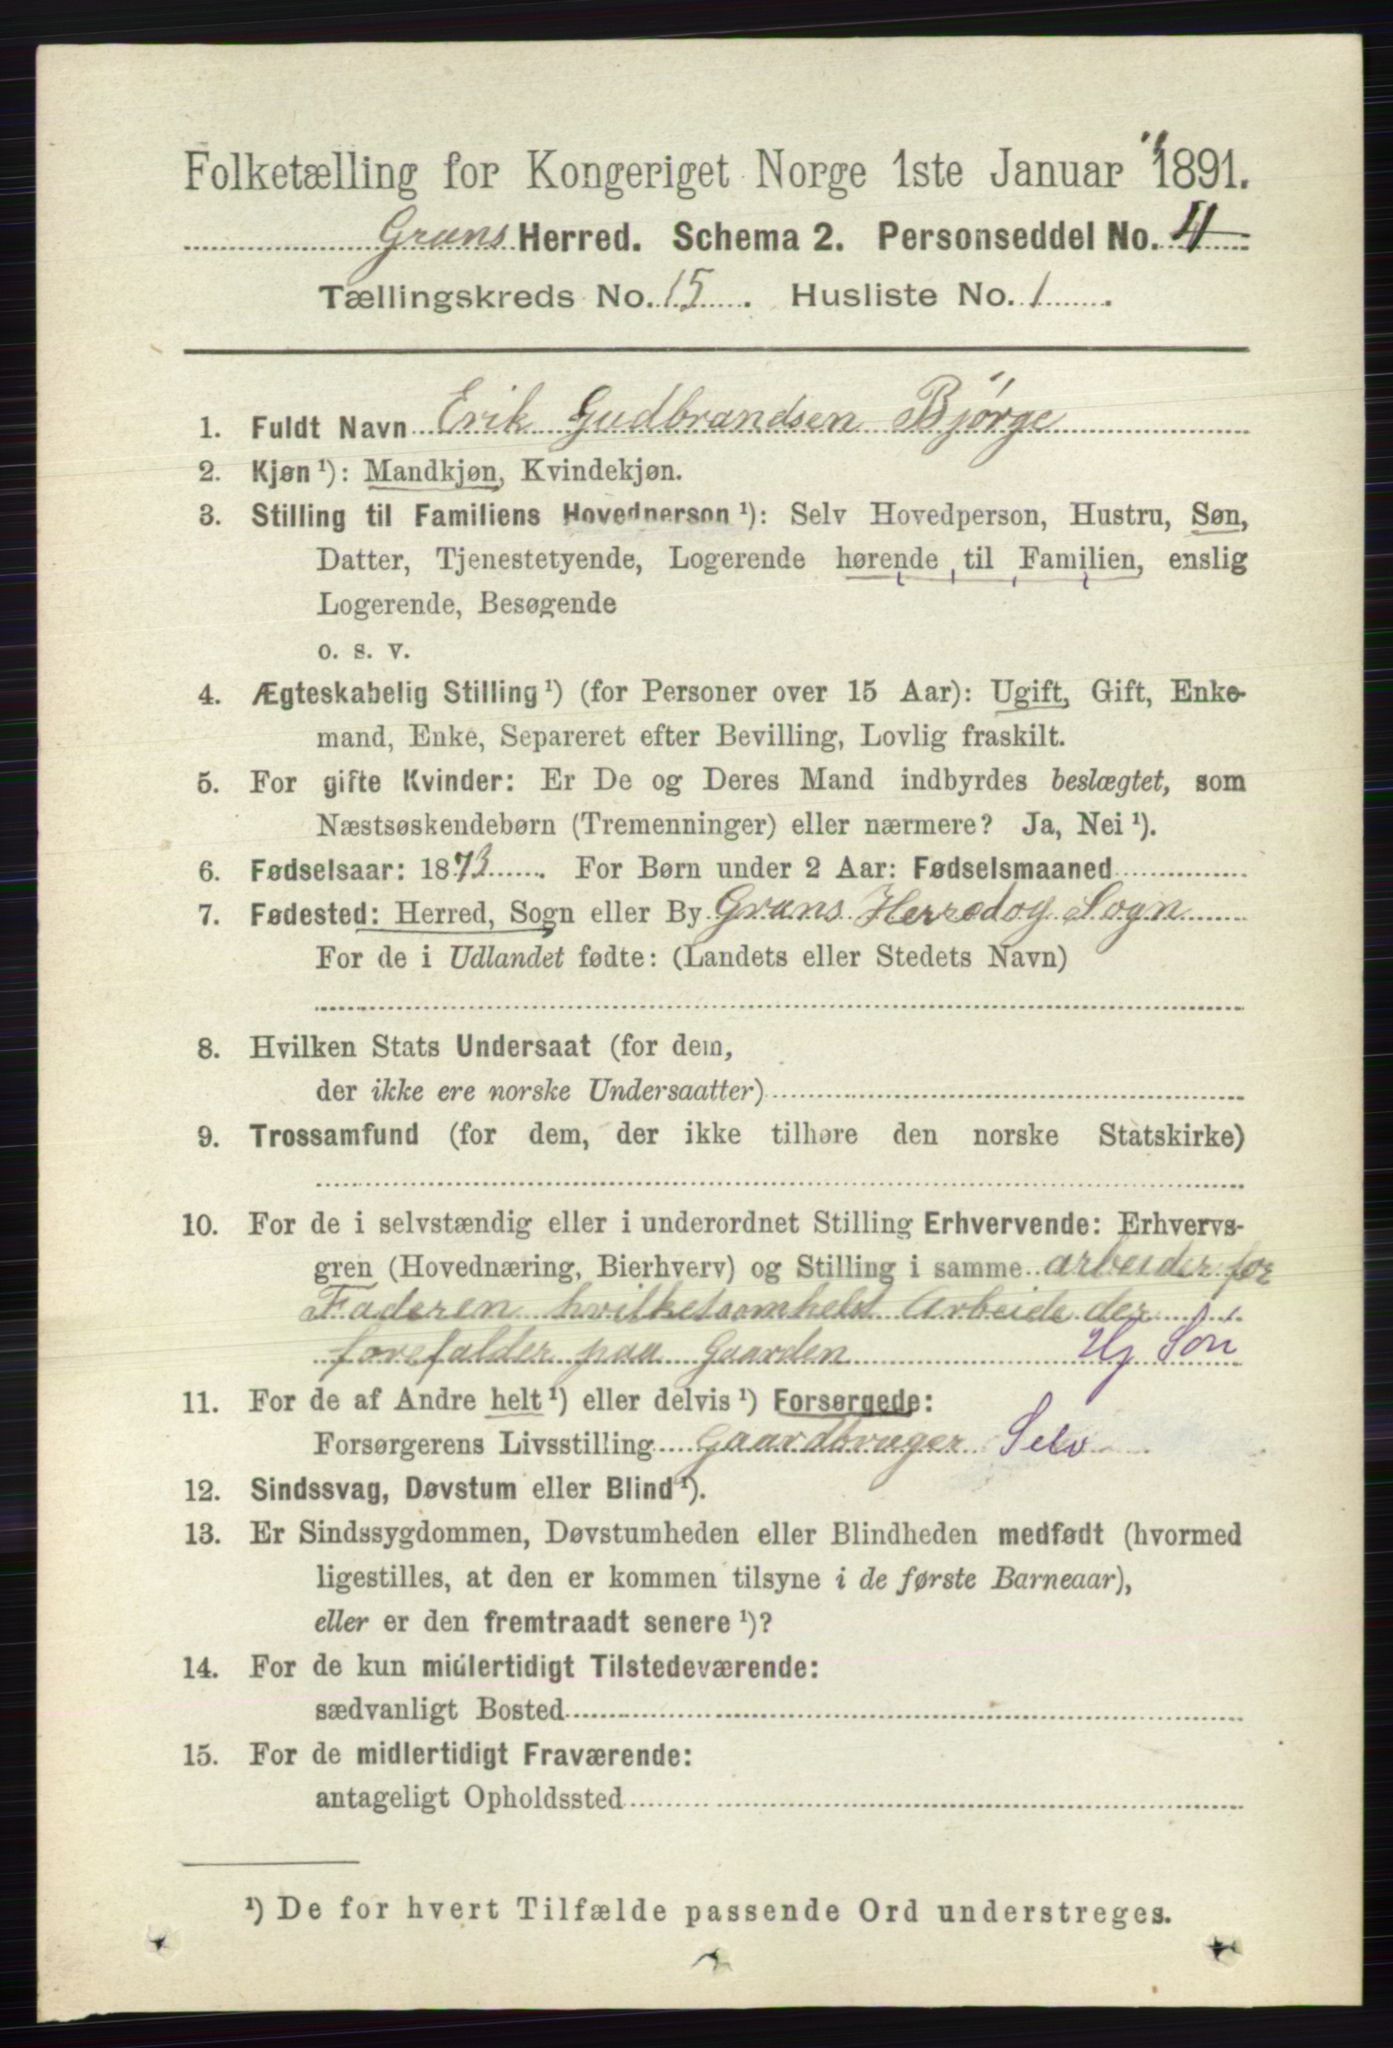 Folketælling for Kongeriget Norge 1ste Januar 1891.
Grans Herred. Schema 2. Personseddel No. 4
Tællingskreds No. 15. Husliste No. 1.
1. Fuldt Navn Erik Gudbrandsen Bjørge
2. Kjøn ¹): Mandkjøn, Kvindekjøn.
3. Stilling til Familiens Hovedperson ¹): Selv Hovedperson, Hustru, Søn,
Datter, Tjenestetyende, Logerende hørende til Familien, enslig
Logerende, Besøgende
o. s. v.
4. Ægteskabelig Stilling ¹) (for Personer over 15 Aar): Ugift, Gift, Enke-
mand, Enke, Separeret efter Bevilling, Lovlig fraskilt.
5. For gifte Kvinder: Er De og Deres Mand indbyrdes beslægtet, som
Næstsøskendebørn (Tremenninger) eller nærmere? Ja, Nei ¹).
6. Fødselsaar: 1873. For Børn under 2 Aar: Fødselsmaaned
7. Fødested: Herred, Sogn eller By Grans Herred og Sogn
For de i Udlandet fødte: (Landets eller Stedets Navn)
8. Hvilken Stats Undersaat (for dem,
der ikke ere norske Undersaatter)
9. Trossamfund (for dem, der ikke tilhøre den norske Statskirke)
10. For de i selvstændig eller i underordnet Stilling Erhvervende: Erhvervs-
gren (Hovednæring, Bierhverv) og Stilling i samme arbeider for
Faderen hvilketsomhelst Arbeide der
forefalder paa Gaarden Hj Søn
11. For de af Andre helt ¹) eller delvis ¹) Forsørgede:
Forsørgerens Livsstilling Gaardbruger Selv
12. Sindssvag, Døvstum eller Blind ¹).
13. Er Sindssygdommen, Døvstumheden eller Blindheden medfødt (hvormed
ligestilles, at den er kommen tilsyne i de første Barneaar),
eller er den fremtraadt senere ¹)?
14. For de kun midlertidigt Tilstedeværende:
sædvanligt Bosted
15. For de midlertidigt Fraværende:
antageligt Opholdssted
¹) De for hvert Tilfælde passende Ord understreges.